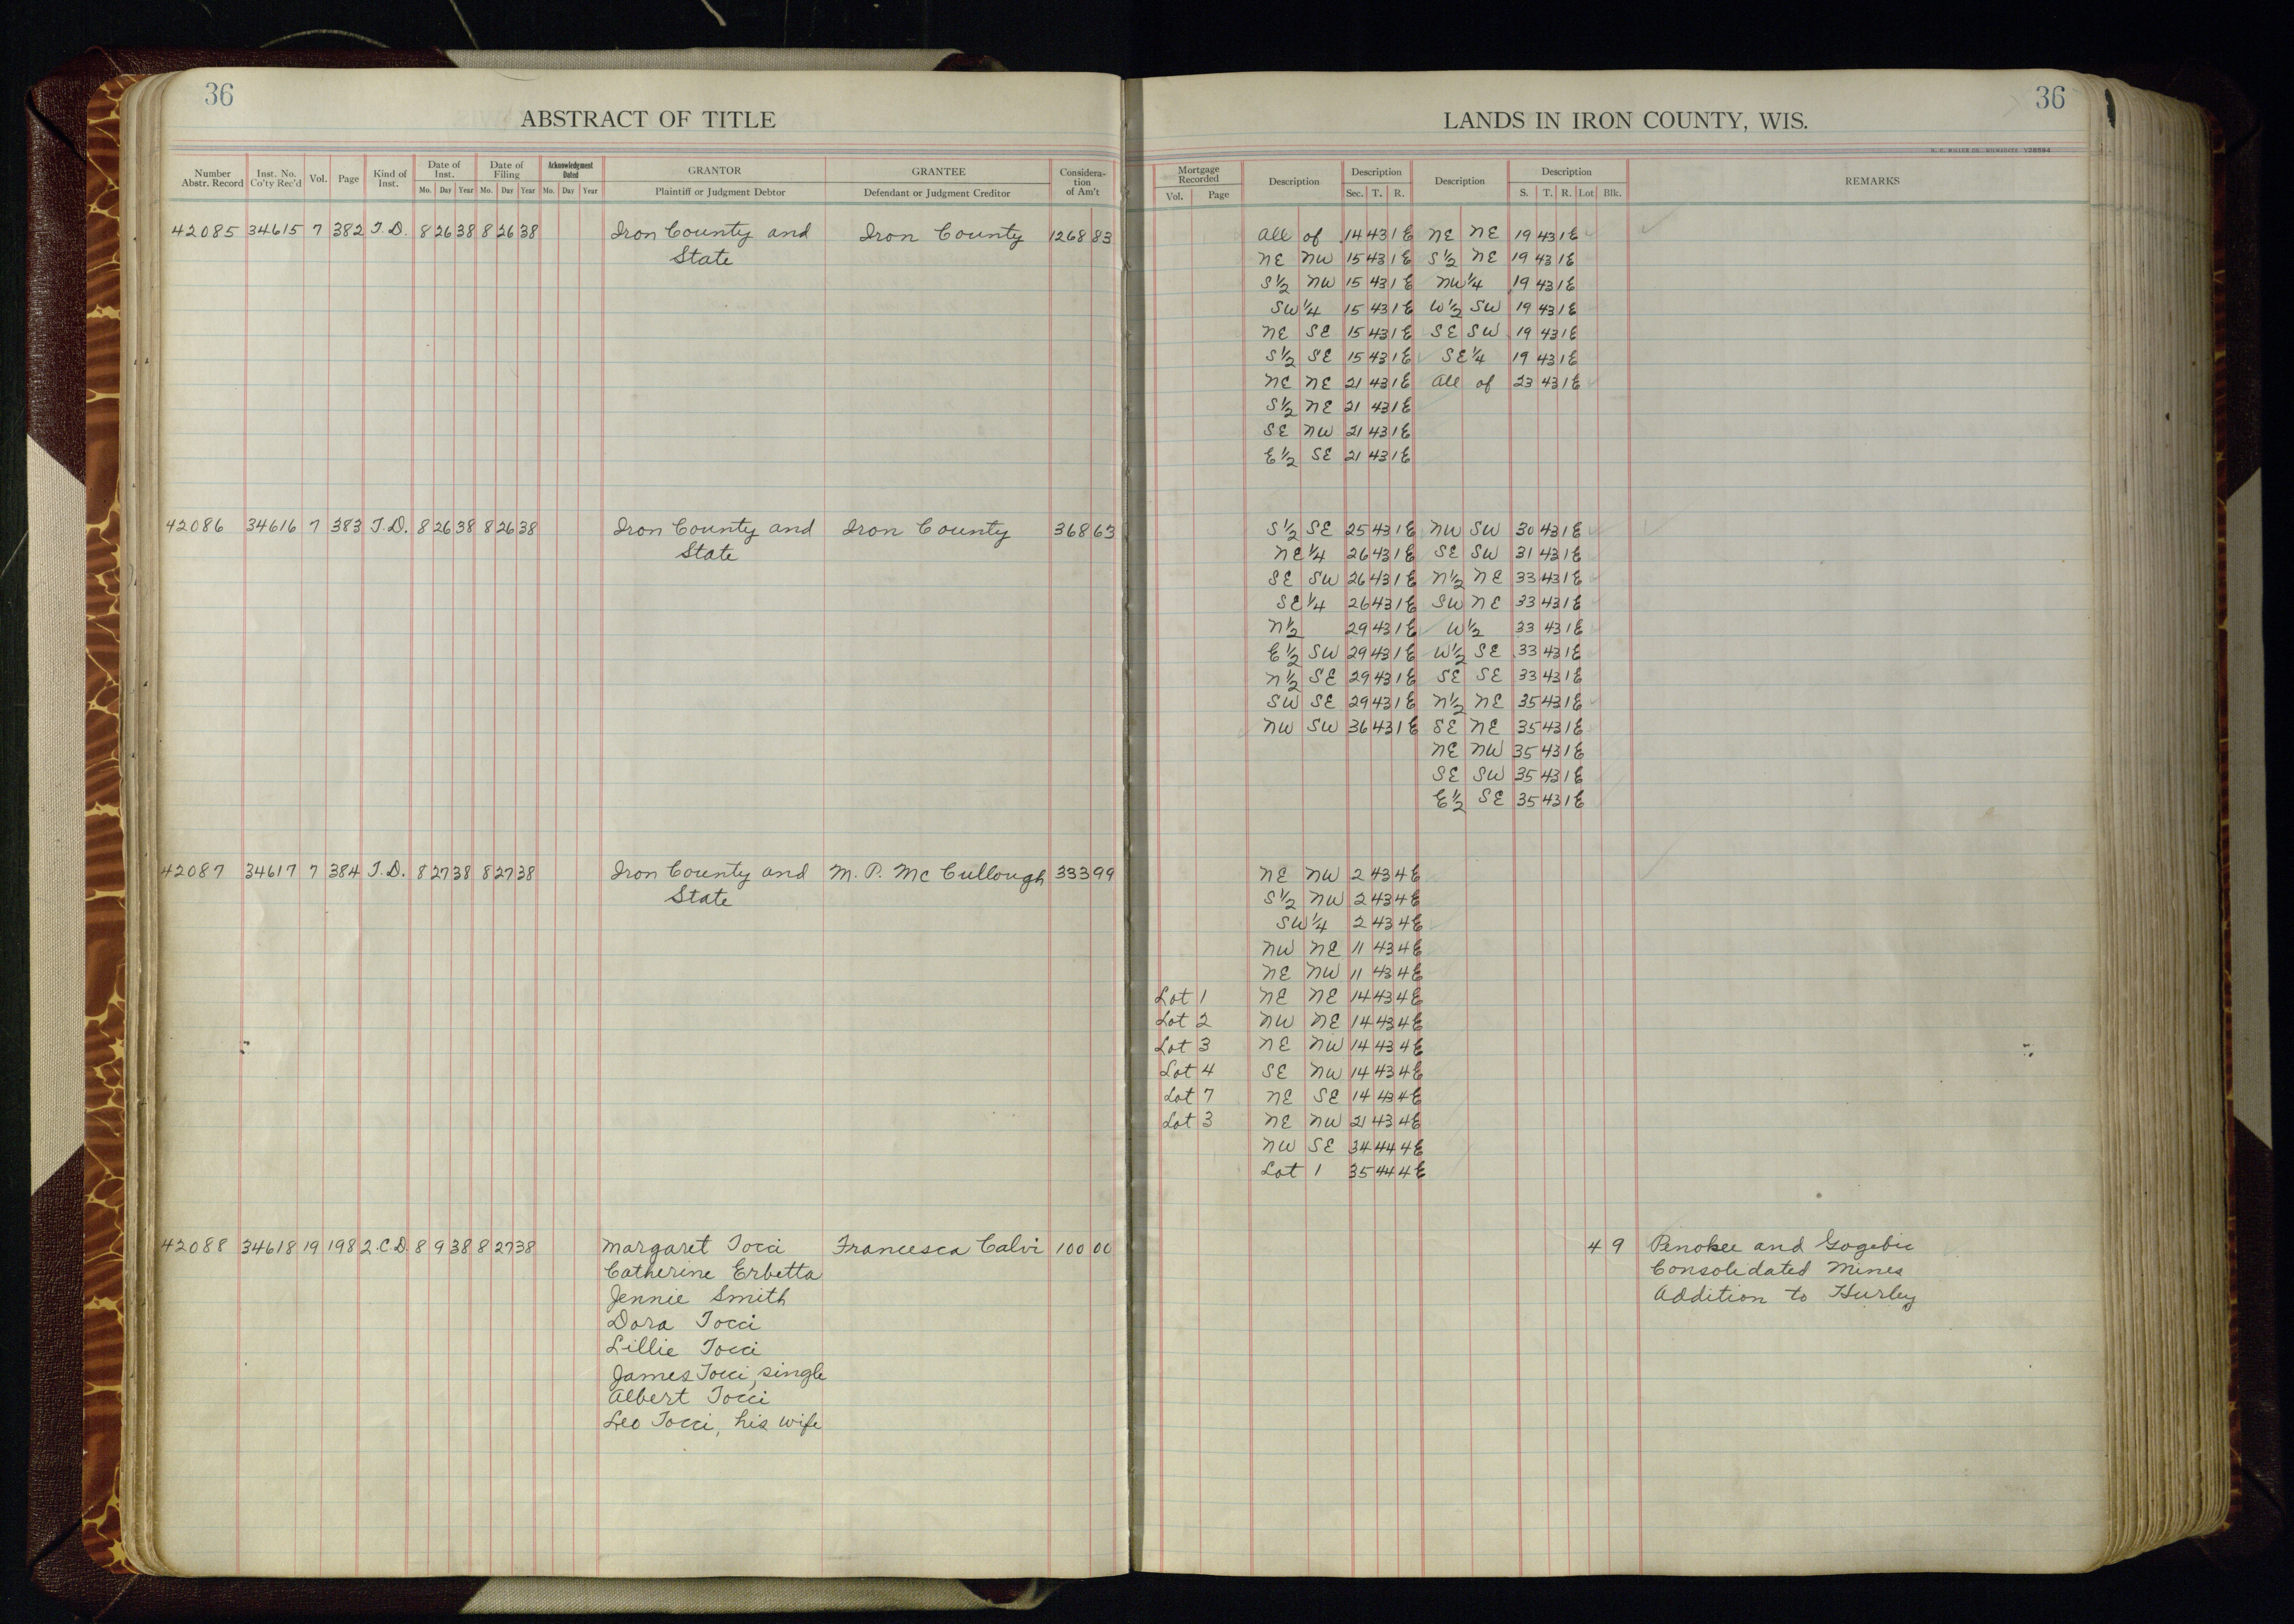 36
ABSTRACT OF TITLE
Number Abstr. Record Inst. No. Co'ty Rec'd Vol. Page Kind of Inst. Date of Inst. Mo. Day Year Date of Filing Mo. Day Year Acknowledgment Dated Mo. Day Year GRANTOR Plaintiff or Judgment Debtor GRANTEE Defendant or Judgment Creditor Consideration of Am't
42085 34615 7 382 T.D. 8 26 38 8 26 38 Iron County and Iron County 1268 83
State
42086 34616 7 383 T.D. 8 26 38 8 26 38 Iron County and Iron County 368 63
State
42087 34617 7 384 T.D. 8 27 38 8 27 38 Iron County and M. P. McCullough 333 99
State
42088 34618 19 198 2.C.D. 8 9 38 8 27 38 Margaret Tocci Francesca Calvi 100 00
Catherine Erbetta
Jennie Smith
Dora Tocci
Lillie Tocci
James Tocci, single
Albert Tocci
Leo Tocci, his wife
36
LANDS IN IRON COUNTY, WIS.
H. C. MILLER CO., MILWAUKEE V38594
Mortgage Recorded Vol. Page Description Description Sec. T. R. Description Description S. T. R. Lot Blk. REMARKS
All of 14 43 1E NE NE 19 43 1E
NE NW 15 43 1E S½ NE 19 43 1E
S½ NW 15 43 1E NW¼ 19 43 1E
SW¼ 15 43 1E W½ SW 19 43 1E
NE SE 15 43 1E SE SW 19 43 1E
S½ SE 15 43 1E SE¼ 19 43 1E
NE NE 21 43 1E All of 23 43 1E
S½ NE 21 43 1E
SE NW 21 43 1E
E½ SE 21 43 1E
S½ SE 25 43 1E NW SW 30 43 1E
NE¼ 26 43 1E SE SW 31 43 1E
SE SW 26 43 1E N½ NE 33 43 1E
SE¼ 26 43 1E SW NE 33 43 1E
N½ 29 43 1E W½ 33 43 1E
E½ SW 29 43 1E W½ SE 33 43 1E
N½ SE 29 43 1E SE SE 33 43 1E
SW SE 29 43 1E N½ NE 35 43 1E
NW SW 36 43 1E SE NE 35 43 1E
NE NW 35 43 1E
SE SW 35 43 1E
E½ SE 35 43 1E
NE NW 2 43 4E
S½ NW 2 43 4E
SW¼ 2 43 4E
NW NE 11 43 4E
NE NW 11 43 4E
Lot 1 NE NE 14 43 4E
Lot 2 NW NE 14 43 4E
Lot 3 NE NW 14 43 4E
Lot 4 SE NW 14 43 4E
Lot 7 NE SE 14 43 4E
Lot 3 NE NW 21 43 4E
NW SE 34 44 4E
Lot 1 35 44 4E
4 9 Penokee and Gogebic
Consolidated Mines
Addition to Hurley